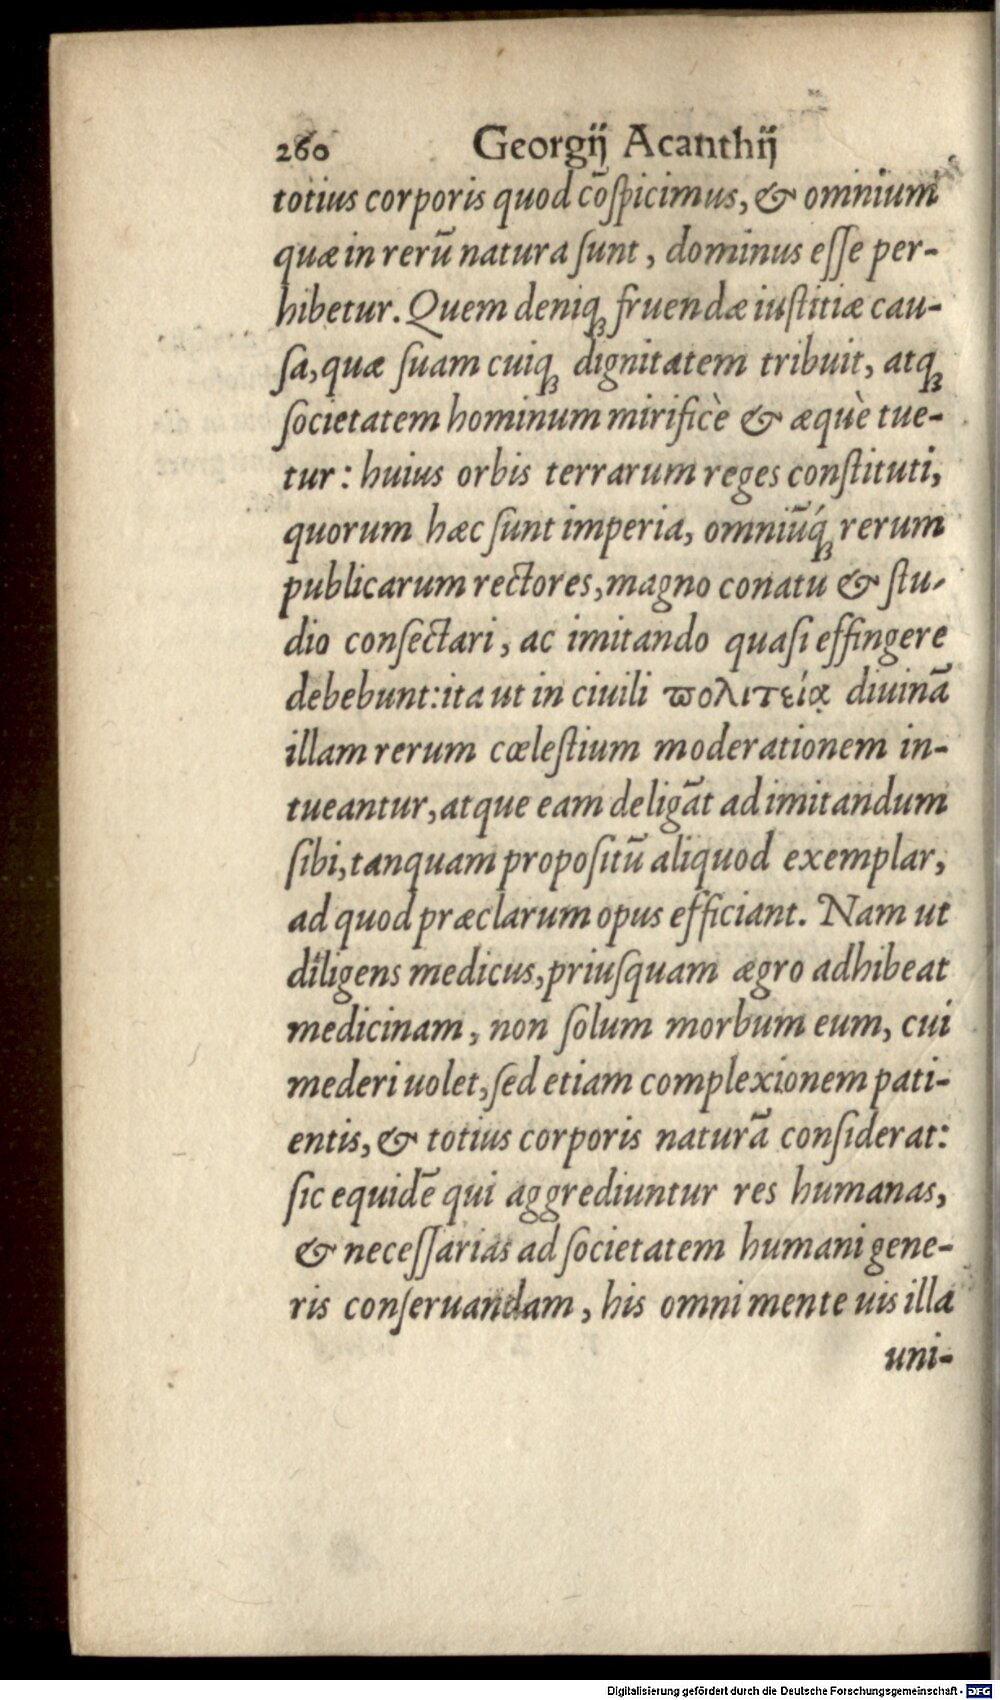 260 Georgij Acanthij
totius corporis quod cōſpicimus, & omnium
quæ in rerū natura ſunt, dominus eſſe per-
hibetur. Quem deniqꝫ fruendæ iuſtitiæ cau-
ſa, quæ ſuam cuiqꝫ dignitatem tribuit, atqꝫ
ſocietatem hominum mirificè & æquè tue-
tur: huius orbis terrarum reges conſtituti,
quorum hæc ſunt imperia, omniūq́ꝫ rerum
publicarum rectores, magno conatu & ſtu-
dio conſectari, ac imitando quaſi effingere
debebunt: ita ut in ciuili ϖολιτείᾳ diuinā
illam rerum cœleſtium moderationem in-
tueantur, atque eam deligāt ad imitandum
ſibi, tanquam propoſitū aliquod exemplar,
ad quod præclarum opus efficiant. Nam ut
diligens medicus, priuſquam ægro adhibeat
medicinam, non ſolum morbum eum, cui
mederi uolet, ſed etiam complexionem pati-
entis, & totius corporis naturā conſiderat:
ſic equidē qui aggrediuntur res humanas,
& neceſſarias ad ſocietatem humani gene-
ris conſeruandam, his omni mente uis illa
uni-
Digitalisierung gefördert durch die Deutsche Forschungsgemeinschaft - DFG